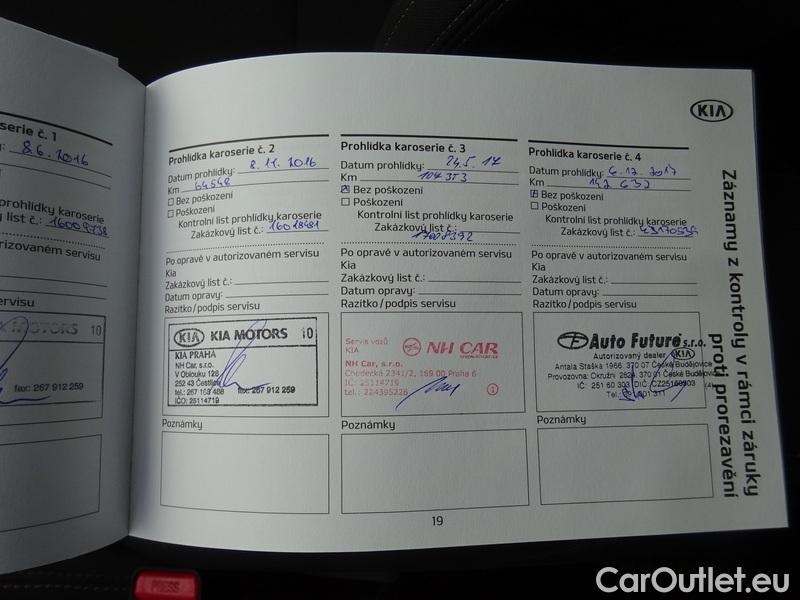 KIA
serie č. 1
8.6.2016
y list č.: 16009738
autorizovaném servisu
servisu
KIA MOTORS 10
fax: 267 912 259
Prohlídka karoserie č. 2
Datum prohlídky: 8. 11. 2016
Km 64548
Bez poškození
Poškození
Kontrolní list prohlídky karoserie
Zakázkový list č.: 16018481
Po opravě v autorizovaném servisu
Kia
Zakázkový list č.:
Datum opravy:
Razítko/podpis servisu
KIA KIA MOTORS 10
KIA PRAHA
NH Car, s.r.o.
V Oblouku 128
252 43 Čestlice
tel.: 267 163 488 fax: 267 912 259
IČO: 25114719
Poznámky
Prohlídka karoserie č. 3
Datum prohlídky: 24.5. 17
Km 104 353
Bez poškození
Poškození
Kontrolní list prohlídky karoserie
Zakázkový list č.:
17008392
Po opravě v autorizovaném servisu
Kia
Zakázkový list č.:
Datum opravy:
Razítko/podpis servisu
Servis vozů
KIA
NH CAR
www.nhcar.cz
NH Car, s.r.o.
Chodecká 2341/2, 169 00 Praha 6
IČ: 25114719
tel.: 224395226
1
Poznámky
Prohlídka karoserie č. 4
Datum prohlídky: 6.12.2017
Km 142 632
Bez poškození
Poškození
Kontrolní list prohlídky karoserie
Zakázkový list č.:
Po opravě v autorizovaném servisu
Kia
Zakázkový list č.:
Datum opravy:
Razítko/podpis servisu
Auto Future s.r.o.
Autorizovaný dealer KIA
Antala Staška 1966, 370 01 České Budějovice
Provozovna: Okružní 370 01 České Budějovice
IČ: 251 60 303 DIČ: CZ25160303
Poznámky
Záznamy z kontroly v rámci záruky
proti prorezavění
19
PRESS
CarOutlet.eu